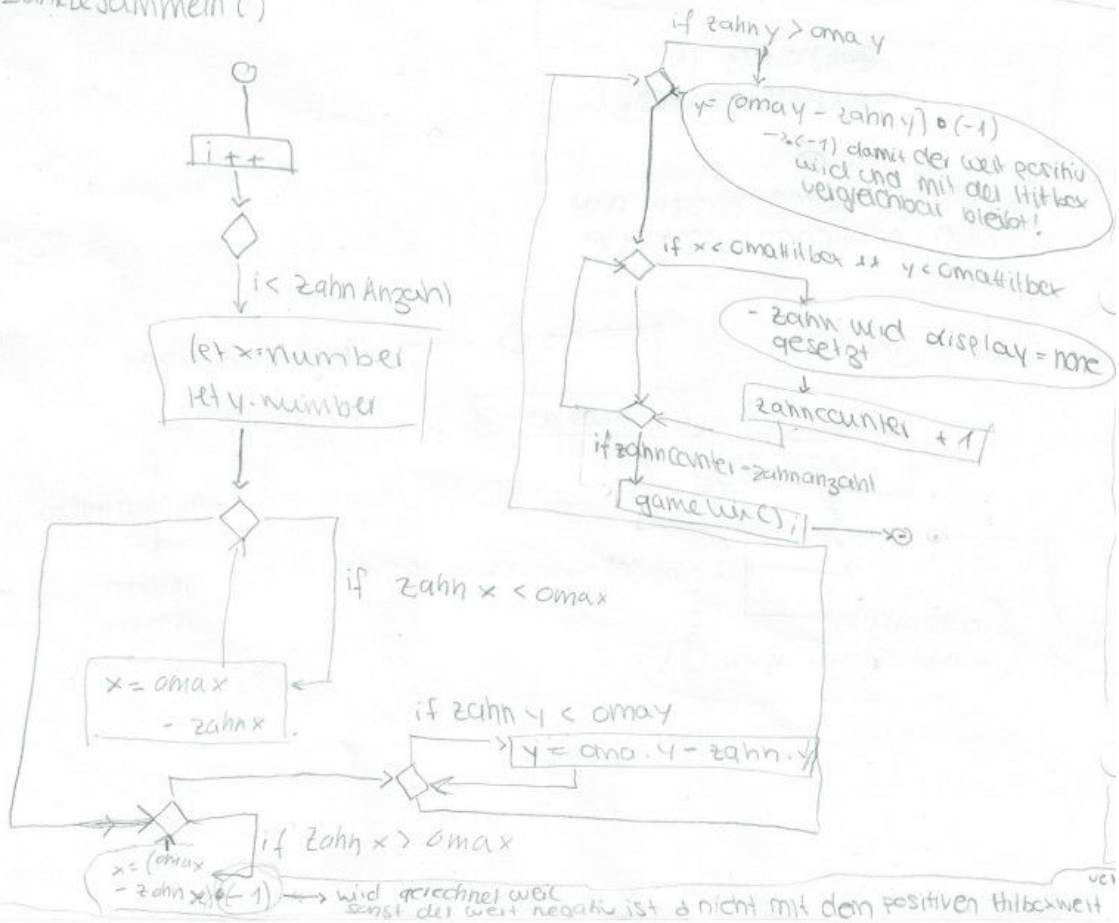 i++
i < zahnAnzahl
let x:number
let y:number
if zahn x < omax
x = omax
- zahn x
if zahn y < omay
y = oma.y - zahn.y
if zahn x > omax
x = (omax
- zahn x) • (-1)
wird gerechnet weil
sonst der wert negativ ist & nicht mit dem positiven Hitboxwert
if zahn y > oma y
y = (oma y - zahn y) • (-1)
(-1) damit der wert positiv
wird und mit der Hitbox
vergleichbar bleibt!
if x < omaHitbox && y < omaHitbox
- zahn wird display = none
gesetzt
zahncounter + 1
if zahncounter = zahnanzahl
gameWin();